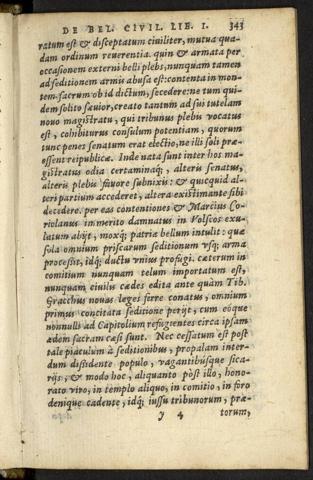 DE BEL. CIVIL. LIB. I. 343
ratum est & disceptatum ciuiliter, mutua qua-
dam ordinum reuerentia. quin & armata per
occasionem externi belli plebs, nunquam tamen
ad seditionem armis abusa est: contenta in mon-
tem, sacrum ob id dictum, secedere: ne tum qui-
dem solito sæuior, creato tantum ad sui tutelam
nouo magistratu, qui tribunus plebis vocatus
est, cohibiturus consulum potentiam, quorum
tunc penes senatum erat electio, ne illi soli præ-
essent reipublicæ. Inde nata sunt inter hos ma-
gistratus odia certaminaq́;, alteris senatus,
alteris plebis fauore subnixis: & quicquid al-
teri partium accederet, altera existimante sibi
decedere. per eas contentiones & Marcius Co-
riolanus immerito damnatus in Volscos exu-
latum abijt, moxq́; patriæ bellum intulit: quæ
sola omnium priscarum seditionum vsq; arma
processit, idq́; ductu vnius profugi. cæterum in
comitium nunquam telum importatum est,
nunquam ciuilu cædes edita ante quàm Tib.
Gracchus nouas leges ferre conatus, omnium
primus concitata seditione perijt, cum eoque
nonnulli ad Capitolium refugientes circa ipsam
ædem sacram cæsi sunt. Nec cessatum est post
tale piaculum à seditionibus, propalam inter-
dum dissidente populo, vagantibúsque sica-
rijs, & modo hoc, aliquanto pòst illo, hono-
rato viro, in templo aliquo, in comitio, in foro
denique cadente, idq́; iussu tribunorum, præ-
y 4 torum,